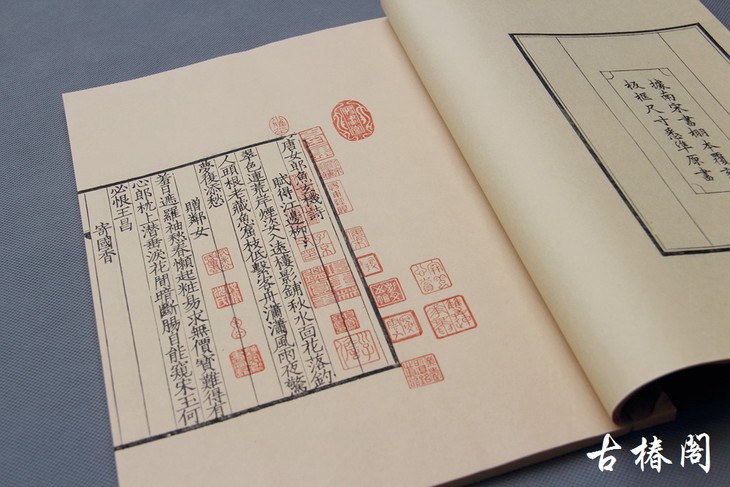 據南宋書棚本覆
板框尺寸悉準原書
唐女郎魚玄機詩
賦得江邊柳
翠色連荒岸煙姿入遠樓影鋪秋水面花落釣
人頭根老藏魚窟枝低繫客舟瀟瀟風雨夜驚
夢復添愁
贈鄰女
羞日遮羅袖愁春懶起粧易求無價寶難得有
心郎枕上潛垂淚花間暗斷腸自能窺宋玉何
必恨王昌
寄國香
古椿閣